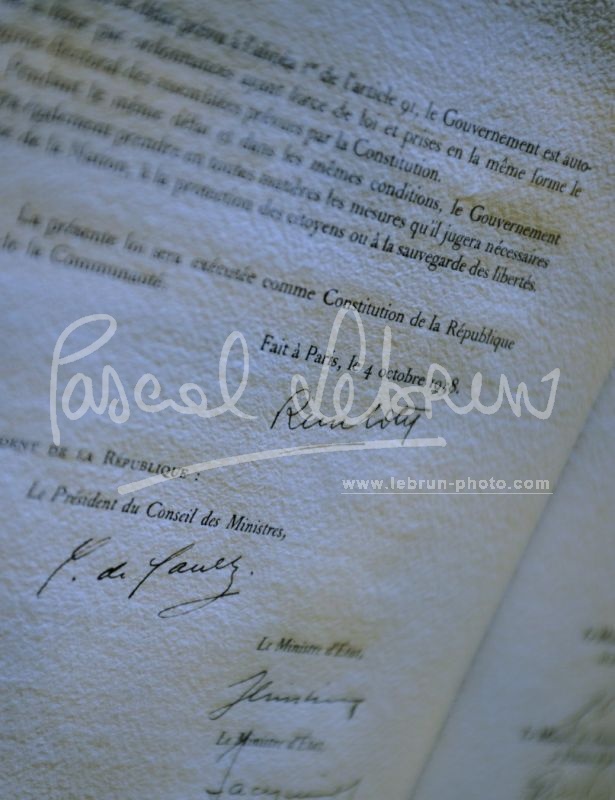 de l'article 91, le Gouvernement est auto-
ayant force de loi et prises en la même forme le
électoral des assemblées prévues par la Constitution.
Pendant le même délai et dans les mêmes conditions, le Gouvernement
également prendre en toutes matières les mesures qu'il jugera nécessaires
de la Nation, à la protection des citoyens ou à la sauvegarde des libertés.
La présente loi sera exécutée comme Constitution de la République
de la Communauté.
Fait à Paris, le 4 octobre 1958.
Pascal Lebrun
www.lebrun-photo.com
DENT DE LA RÉPUBLIQUE :
Le Président du Conseil des Ministres,
C. de Gaulle.
Le Ministre d'État,
Le Ministre d'État,